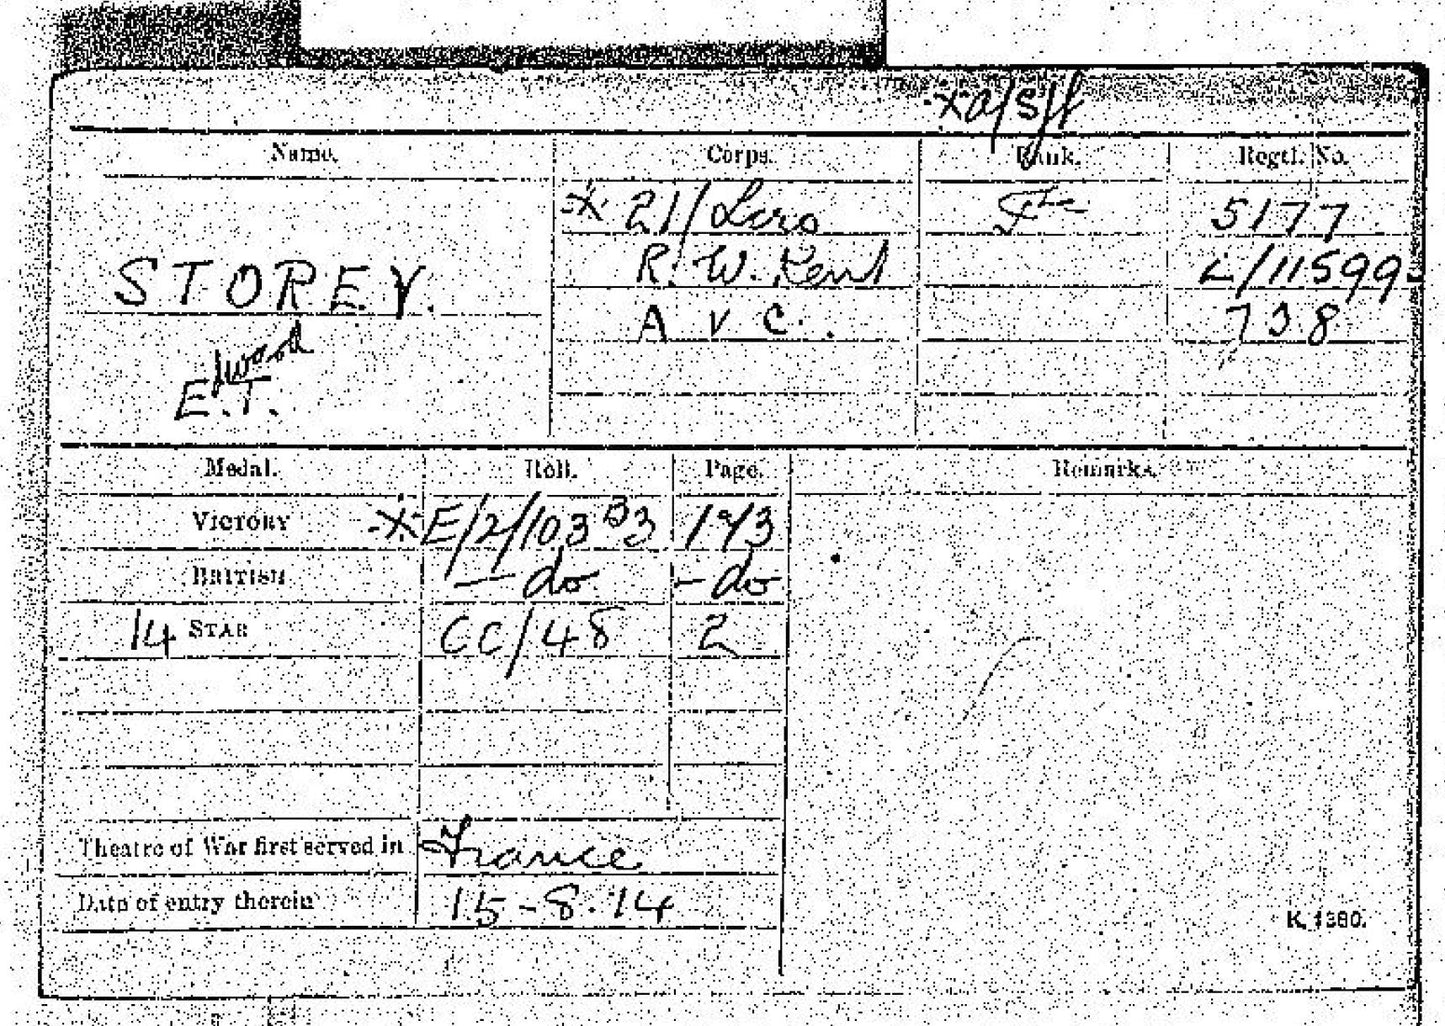 Name. Corps. Rank. Regtl. No.
21/Lcrs 5177
R. W. Kent L/11599
STOREY. A V C. 738
dward
E.T.
Medal. Roll. Page. Remarks.
VICTORY E/2/103 B3
BRITISH — do - do
14 STAR CC/48 2
Theatre of War first served in France
Date of entry therein 15-8-14
K. 1380.